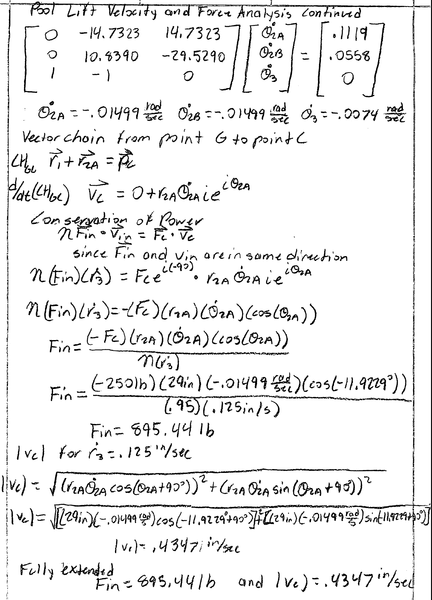 Pool Lift Velocity and Force Analysis continued
[0 -14.7323 14.7323] [θ̇2A] = [.1119]
[0 10.8390 -29.5290] [θ̇2B] [.0558]
[1 -1 0] [θ̇3] [0]
θ̇2A = -.01499 rad/sec θ̇2B = -.01499 rad/sec θ̇3 = -.0074 rad/sec
Vector chain from point G to point C
r⃗1 + r⃗2A = p⃗c
d/dt V⃗c = 0 + r2A θ̇2A i e^iθ2A
Conservation of Power
n F⃗in · V⃗in = F⃗c · V⃗c
since Fin and vin are in same direction
n(Fin)(ṙ3) = Fc e^i(-90) · r2A θ̇2A i e^iθ2A
n(Fin)(ṙ3) = -(Fc)(r2A)(θ̇2A)(cos(θ2A))
Fin = (-Fc)(r2A)(θ̇2A)(cos(θ2A)) / n(ṙ3)
Fin = (-250lb)(29in)(-.01499 rad/sec)(cos(-11.9229°)) / (.95)(.125in/s)
Fin = 895.44 lb
|vc| for ṙ3 = .125 in/sec
|vc| = √((r2A θ̇2A cos(θ2A+90°))² + (r2A θ̇2A sin(θ2A+90°))²
|vc| = √[(29in)(-.01499 rad/s)cos(-11.9229°+90°)]² + [(29in)(-.01499 rad/s)sin(-11.9229°+90°)]²
|vc| = .4347 in/sec
Fully extended
Fin = 895.44 lb and |vc| = .4347 in/sec